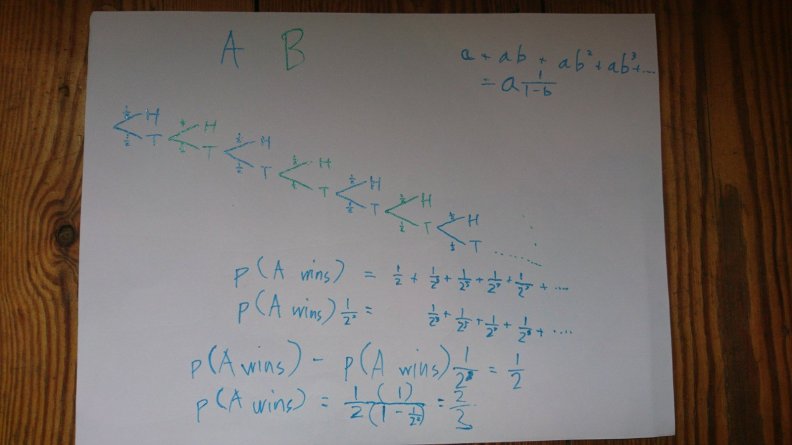 A B
a + ab + ab² + ab³ + ...
= a 1/(1-b)
1/2 H
1/2 T
1/2 H
1/2 T
1/2 H
1/2 T
1/2 H
1/2 T
1/2 H
1/2 T
1/2 H
1/2 T
1/2 H
1/2 T ......
p(A wins) = 1/2 + 1/2³ + 1/2⁵ + 1/2⁷ + 1/2⁹ + ....
p(A wins) 1/2² = 1/2³ + 1/2⁵ + 1/2⁷ + 1/2⁹ + ....
p(A wins) - p(A wins) 1/2² = 1/2
p(A wins) = 1/2 (1)/(1 - 1/2²) = 2/3